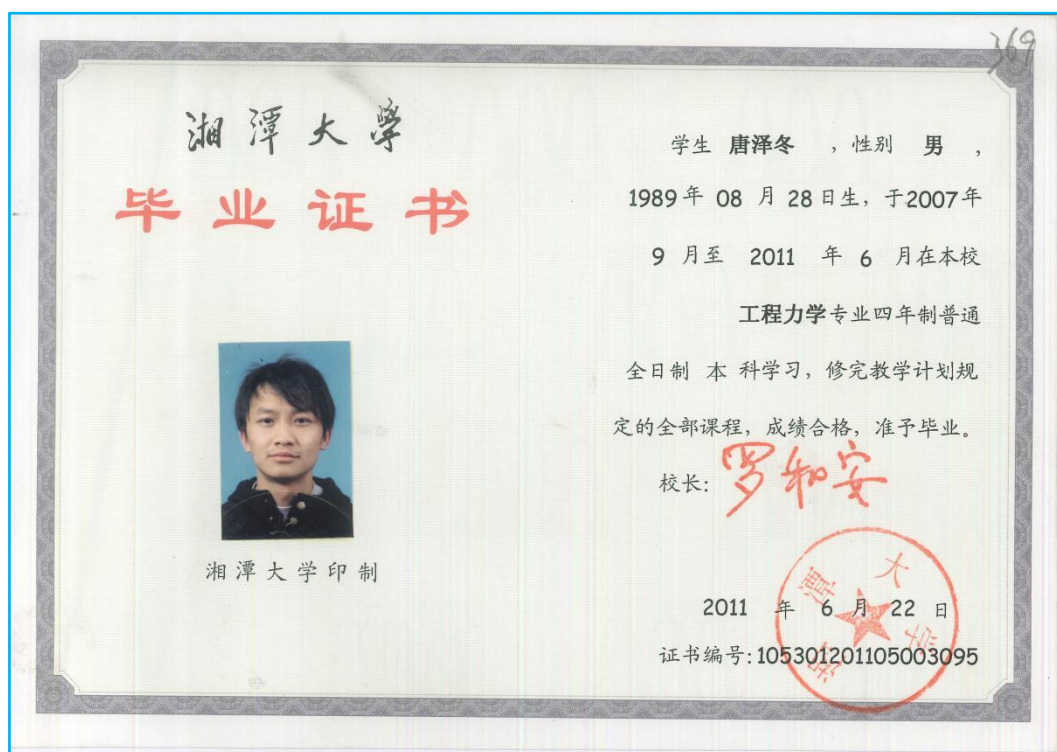 369
湘潭大学
毕业证书
湘潭大学印制
学生 唐泽冬 ，性别 男 ，
1989年 08 月 28日生，于2007年
9 月至 2011 年 6 月在本校
工程力学专业四年制普通
全日制 本 科学习，修完教学计划规
定的全部课程，成绩合格，准予毕业。
校长：罗和安
湘潭大学
2011 年 6 月 22 日
证书编号：105301201105003095